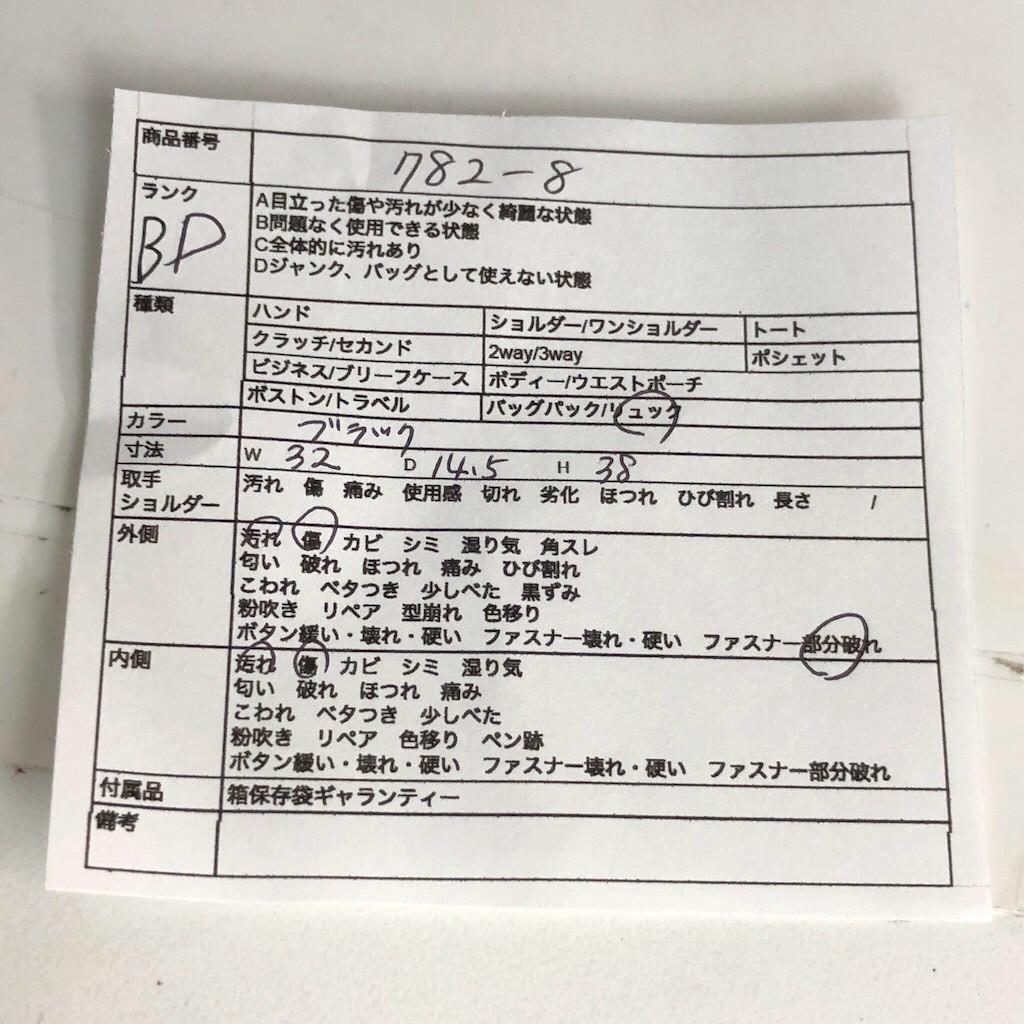 商品番号 782-8
ランク BD
A目立った傷や汚れが少なく綺麗な状態
B問題なく使用できる状態
C全体的に汚れあり
Dジャンク、バッグとして使えない状態
種類
ハンド ショルダー/ワンショルダー トート
クラッチ/セカンド 2way/3way ポシェット
ビジネス/ブリーフケース ボディー/ウエストポーチ
ボストン/トラベル バッグパック/リュック
カラー ブラック
寸法 W 32 D 14.5 H 38
取手 汚れ 傷 痛み 使用感 切れ 劣化 ほつれ ひび割れ 長さ /
ショルダー
外側 汚れ 傷 カビ シミ 湿り気 角スレ
匂い 破れ ほつれ 痛み ひび割れ
こわれ ベタつき 少しべた 黒ずみ
粉吹き リペア 型崩れ 色移り
ボタン緩い・壊れ・硬い ファスナー壊れ・硬い ファスナー部分破れ
内側 汚れ 傷 カビ シミ 湿り気
匂い 破れ ほつれ 痛み
こわれ ベタつき 少しべた
粉吹き リペア 色移り ペン跡
ボタン緩い・壊れ・硬い ファスナー壊れ・硬い ファスナー部分破れ
付属品 箱保存袋ギャランティー
備考